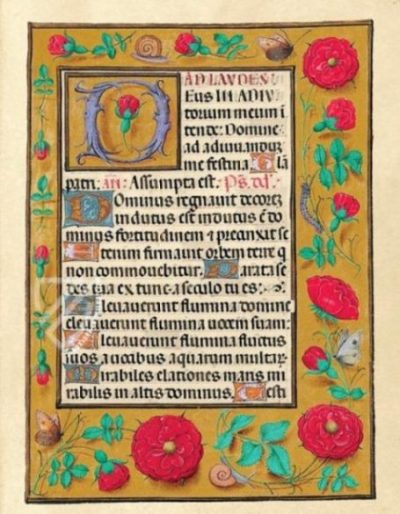 AD LAUDES
Eus in adiu
torium meum i
tende: Domine
ad adiuuandum
me festina Gla
patri: añ: Assumpta est. Ps. dd.
Dominus regnauit decorez
indutus est indutus ē do
minus fortitudinem et precinxit se
Etenim firmauit orbem terre q
non commouebitur Parata se
des tua ex tunc a seculo tu es:
Eleuauerunt flumina domine
eleuauerunt flumina uocem suam:
Eleuauerunt flumina fluctus
suos a uocibus aquarum multar
Mirabiles elationes maris mi
rabilis in altis dominus Test